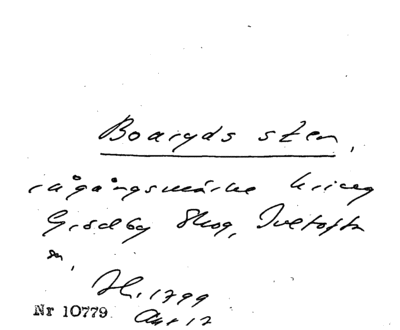 Boaryds sten,
rågångsmärke kring
Gisslby Skog, Ivetofta
sn,
H. 1799
Akt 12
Nr 10779